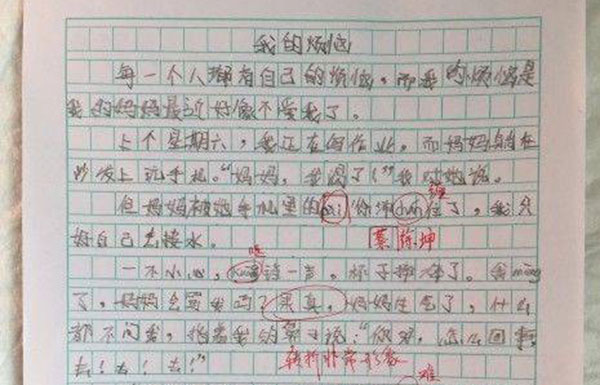 我的烦恼
每一个人都有自己的烦恼，而我的烦恼是
我的妈妈最近好像不爱我了。
上个星期六，我正在写作业，而妈妈躺在
沙发上玩手机。“妈妈，我渴了！”我对她说。
缠
但妈妈被她手机里的cai你chan住了，我只
好自己去接水。
蔡徐坤
一不小心，一声，杯子摔碎了。我ming
了，妈妈会骂我吗？果真，妈妈生气了，什么
都不问我，指着我的鼻子说：“你呀，怎么回事，
去！去！去！”
转折非常形象
难